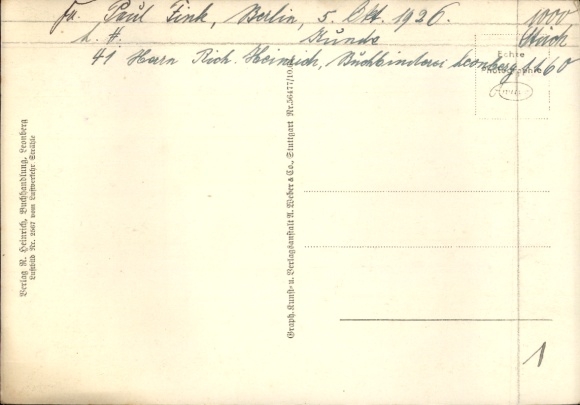 Fa. Paul Fink, Berlin, 5. Okt. 1926. 1000
Kunde Stück
41 Herrn Rich. Heinrich, Buchbinderei Leonberg 1160
Echte
Photographie
Verlag R. Heinrich, Buchhandlung, Leonberg
Luftbild Nr. 2867 vom Luftverkehr Strähle
Graph. Kunst- u. Verlagsanstalt A. Weber & Co., Stuttgart Nr. 56477/10.
1